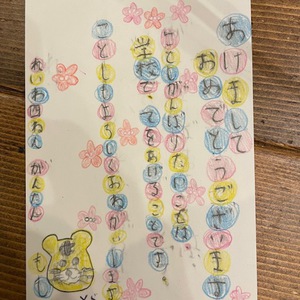 あけまして
おめでとうございます
ことしがんばりたいことは
学校で てをあげることです
ことしもよろしくおねがいします
れいわ四ねん がんたん